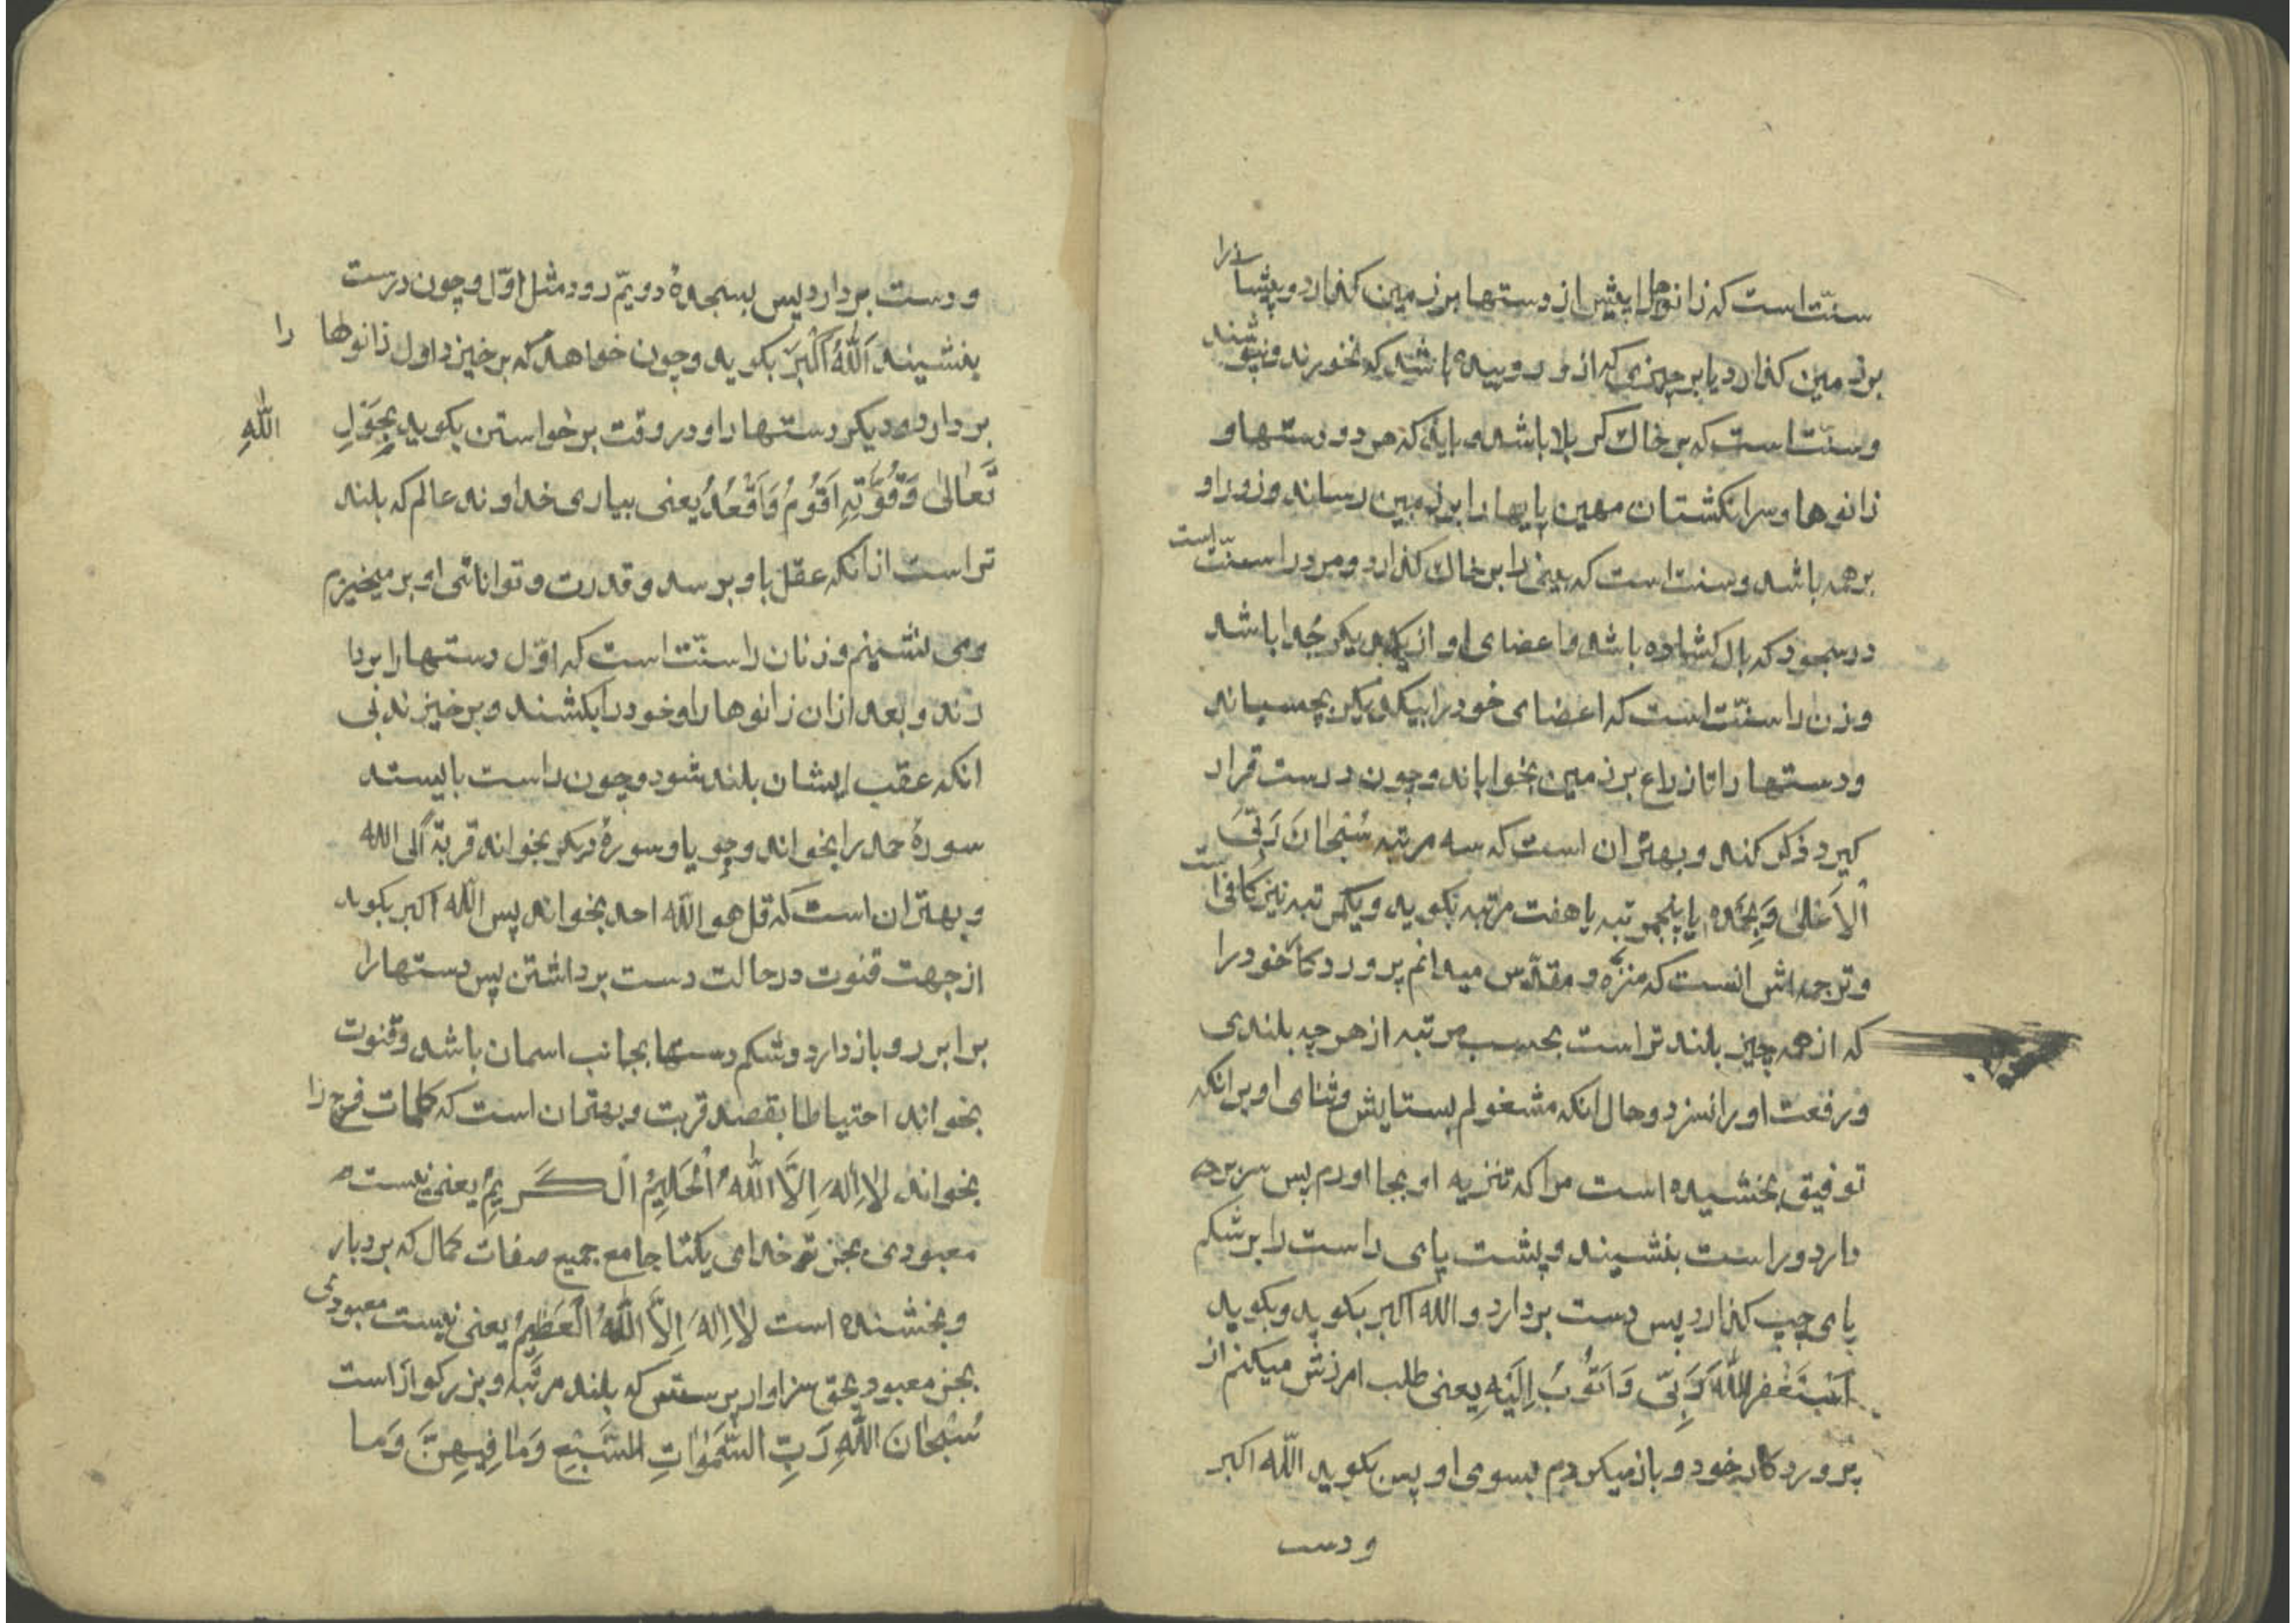 سنّت است که زانوها را پیش از دستها بر زمین گذارد و پیشانی را
بر زمین گذارد یا بر چیزی که از و روییده باشد که نخورند و نپوشند
و سنّت است که بر خاک کربلا باشد و باید که هر دو دستها و
زانوها و سر انگشتان مهین پایها را بر زمین رساند و زور او
بر همه باشد و سنت است که بینی را بر خاک گذارد و مرد را سنّت است
در سجود که بال گشاده باشد و اعضای او از یکدیگر جُدا باشد
و زن را سنّت است که اعضای خود را بیکدیگر بچسباند
و دستها را تا زراع بر زمین بخواباند و چون درست قرار
کیرد ذکر کند و بهتر ان است که سه مرتبه سُبْحانَ رَبِّیَ
الْاَعْلیٰ وَبِحَمْدِه یا پنجمرتبه یا هفت مرتبه بکوید و یکمرتبه نیز کافی است
و ترجمه اش انست که منزّه و مقدّس میدانم پروردکار خود را
که از همه چیز بلند تر است بحسب مرتبه از هر چه بلندی
و رفعت او را نسزد و حال انکه مشغولم بستایش و ثنای او بر انکه
توفیق بخشیده است مرا که تنزیه او بجا اوردم پس سر بر
دارد و راست بنشیند و پشت پای راست را بر شکم
پای چپ گذارد پس دست بردارد و الله اکبر بکوید و بکوید
اَسْتَغْفِرُ اللّٰهَ رَبّی وَ اَتُوبُ اِلَیْهِ یعنی طلب امرزش میکنم از
پروردکار خود و باز میکردم بسوی او پس بکوید اللّه اکبر
و دست
و دست بردارد پس بسجدهٔ دویّم رود مثل اوّل و چون درست
بنشیند اَللّٰهُ اَکْبَرْ بکوید و چون خواهد که بر خیزد اول زانوها را
بردارد و دیکر دستها را و در وقت برخواستن بکوید بِحَوْلِ اللّٰهِ
تَعٰالیٰ وَ قُوَّتِهِ اَقُومُ وَ اَقْعُدُ یعنی بیاری خداوند عالم که بلند
تر است از انکه عقل باو برسد و قدرت و توانائی او بر میخیزم
و می نشینم و زنان را سنّت است که اوّل دستها را بردا
رند و بعد از ان زانوها را و خود را بکشند و برخیزند بی
انکه عقب ایشان بلند شود و چون راست بایستد
سورهٔ حمد را بخواند و چو یا و سورهٔ دیکر بخواند قربةً الی الله
و بهتر ان است که قل هو اللّه احد بخواند پس اللّه اکبر بکوید
از جهت قنوت در حالت دست برداشتن پس دستها را
برابر رو باز دارد و شکم دستها بجانب اسمان باشد و قنوت
بخواند احتیاطا بقصد قربت و بهتر ان است که کلمات فرج را
بخواند لا اِلٰهَ اِلَّا اللّٰهُ الْحَلیمُ الْکَریمُ یعنی نیست
معبودی بجز تو خدای یکتا جامع جمیع صفات کمال که بردبار
و بخشنده است لا اِلٰهَ اِلَّا اللّٰهُ الْعَظیمُ یعنی نیست معبودی
بجز معبود بحق سزاوار پرستش که بلند مرتبه و بزرکوار است
سُبْحانَ اللّٰهِ رَبِّ السَّمٰوٰاتِ السَّبْعِ وَ مٰا فِیهِنَّ وَ ما